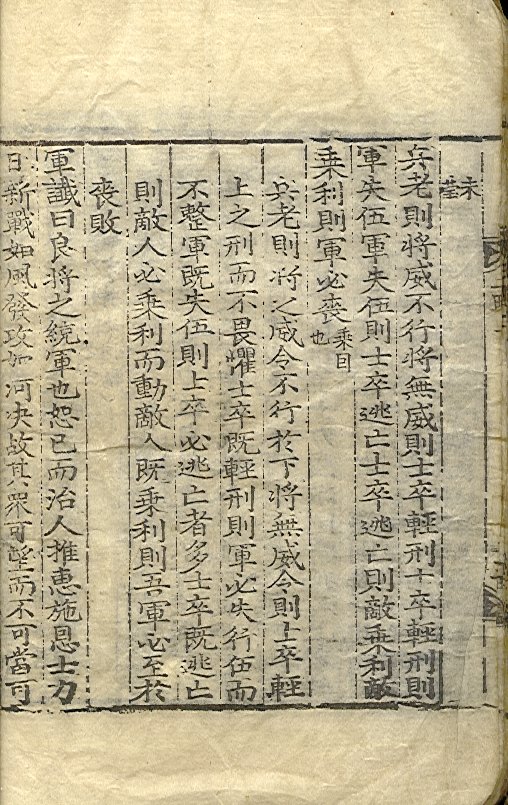 兵老則將威不行將無威則士卒輕刑士卒輕刑則
軍失伍軍失伍則士卒逃亡士卒逃亡則敵乘利敵
乘利則軍必喪
兵老則將之威令不行於下將無威令則士卒輕
上之刑而不畏懼士卒既輕刑則軍必失行伍而
不整軍既失伍則士卒必逃亡者多士卒既逃亡
則敵人必乘利而動敵人既乘利則吾軍必至於
喪敗
軍讖曰良將之統軍也恕己而治人推惠施恩士力
日新戰如風發攻如河决故其眾可望而不可當可